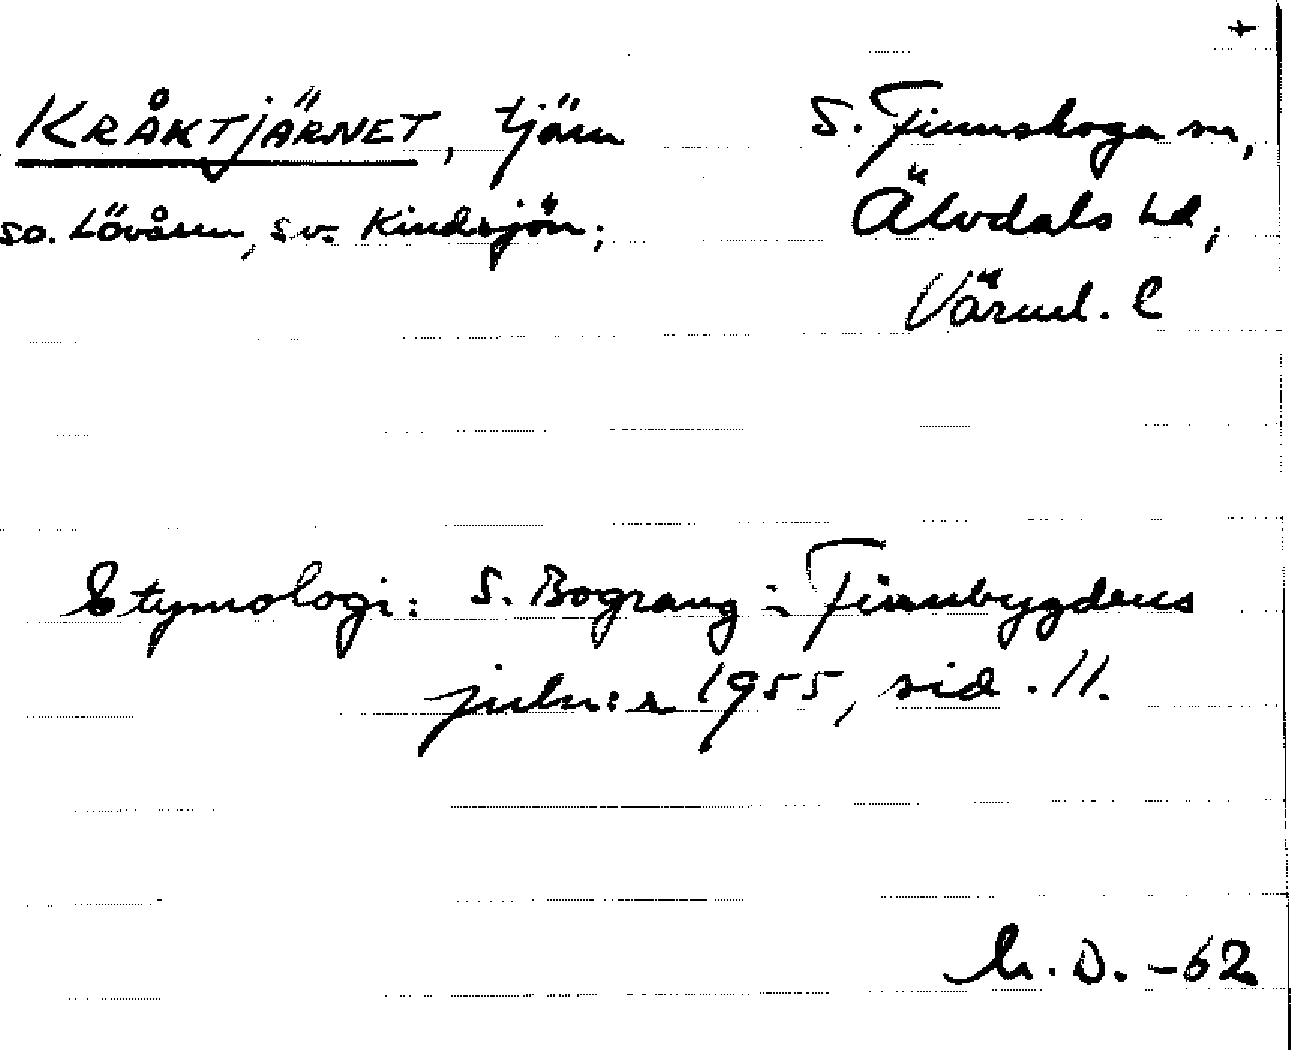 +
KRÅKTJÄRNET, tjärn
S. Finnskoga sn,
so. Lövåsen, sv. Kindsjön;
Älvdals hd,
Värml. l
Etymologi: S. Bograng i Finnbygdens
juln:r 1955, sid. 11.
D. -62